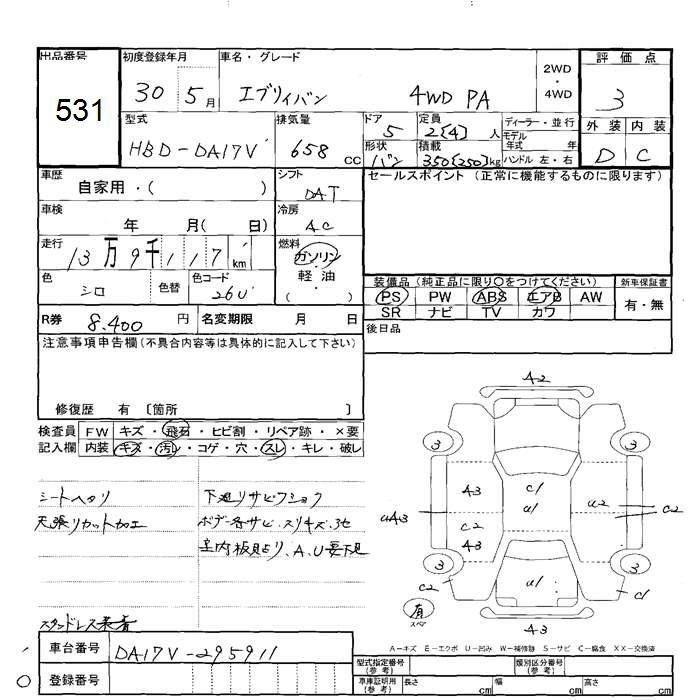 出品番号 初度登録年月 車名・グレード 2WD・4WD 評価点
531 30 5月 エブリィバン 4WD PA 3
型式 排気量 ドア 定員 ディーラー・並行 外装 内装
HBD-DA17V 658 CC 5 2{4} 人 モデル年式 年 D C
形状 バン 積載 350{250}kg ハンドル 左・右
車歴 自家用・( ) シフト DAT セールスポイント (正常に機能するものに限ります)
車検 年 月( 日) 冷房 AC
走行 13万9千117km 燃料 ガソリン・軽油・( )
色 シロ 色替 色コード 26U 装備品 (純正品に限り○をつけてください) 新車保証書
PS PW ABS エアB AW 有・無
SR ナビ TV カワ
R券 8.400 円 名変期限 月 日 後日品
注意事項申告欄(不具合内容等は具体的に記入して下さい)
修復歴 有 〔箇所 〕
検査員 FW キズ・飛石・ヒビ割・リペア跡・×要
記入欄 内装 キズ・汚レ・コゲ・穴・スレ・キレ・破レ
シートヘタリ 下廻リサビフショク
天張リカット加工 ボデー各サビ、スリキズ、凹
室内板貼リ、A、U要下見
スタッドレス装着
A2
3 3
A3 C1 U1 U2
UA3 C2 C2
A3
3 3
C2 U1 C1
有 スペア
A3
A-キズ E-エクボ U-凹み W-補修跡 S-サビ C-腐食 XX-交換済
車台番号 DA17V-295911 型式指定番号(参考) 類別区分番号(参考)
登録番号 車庫証明用(参考) 長さ cm 幅 cm 高さ cm